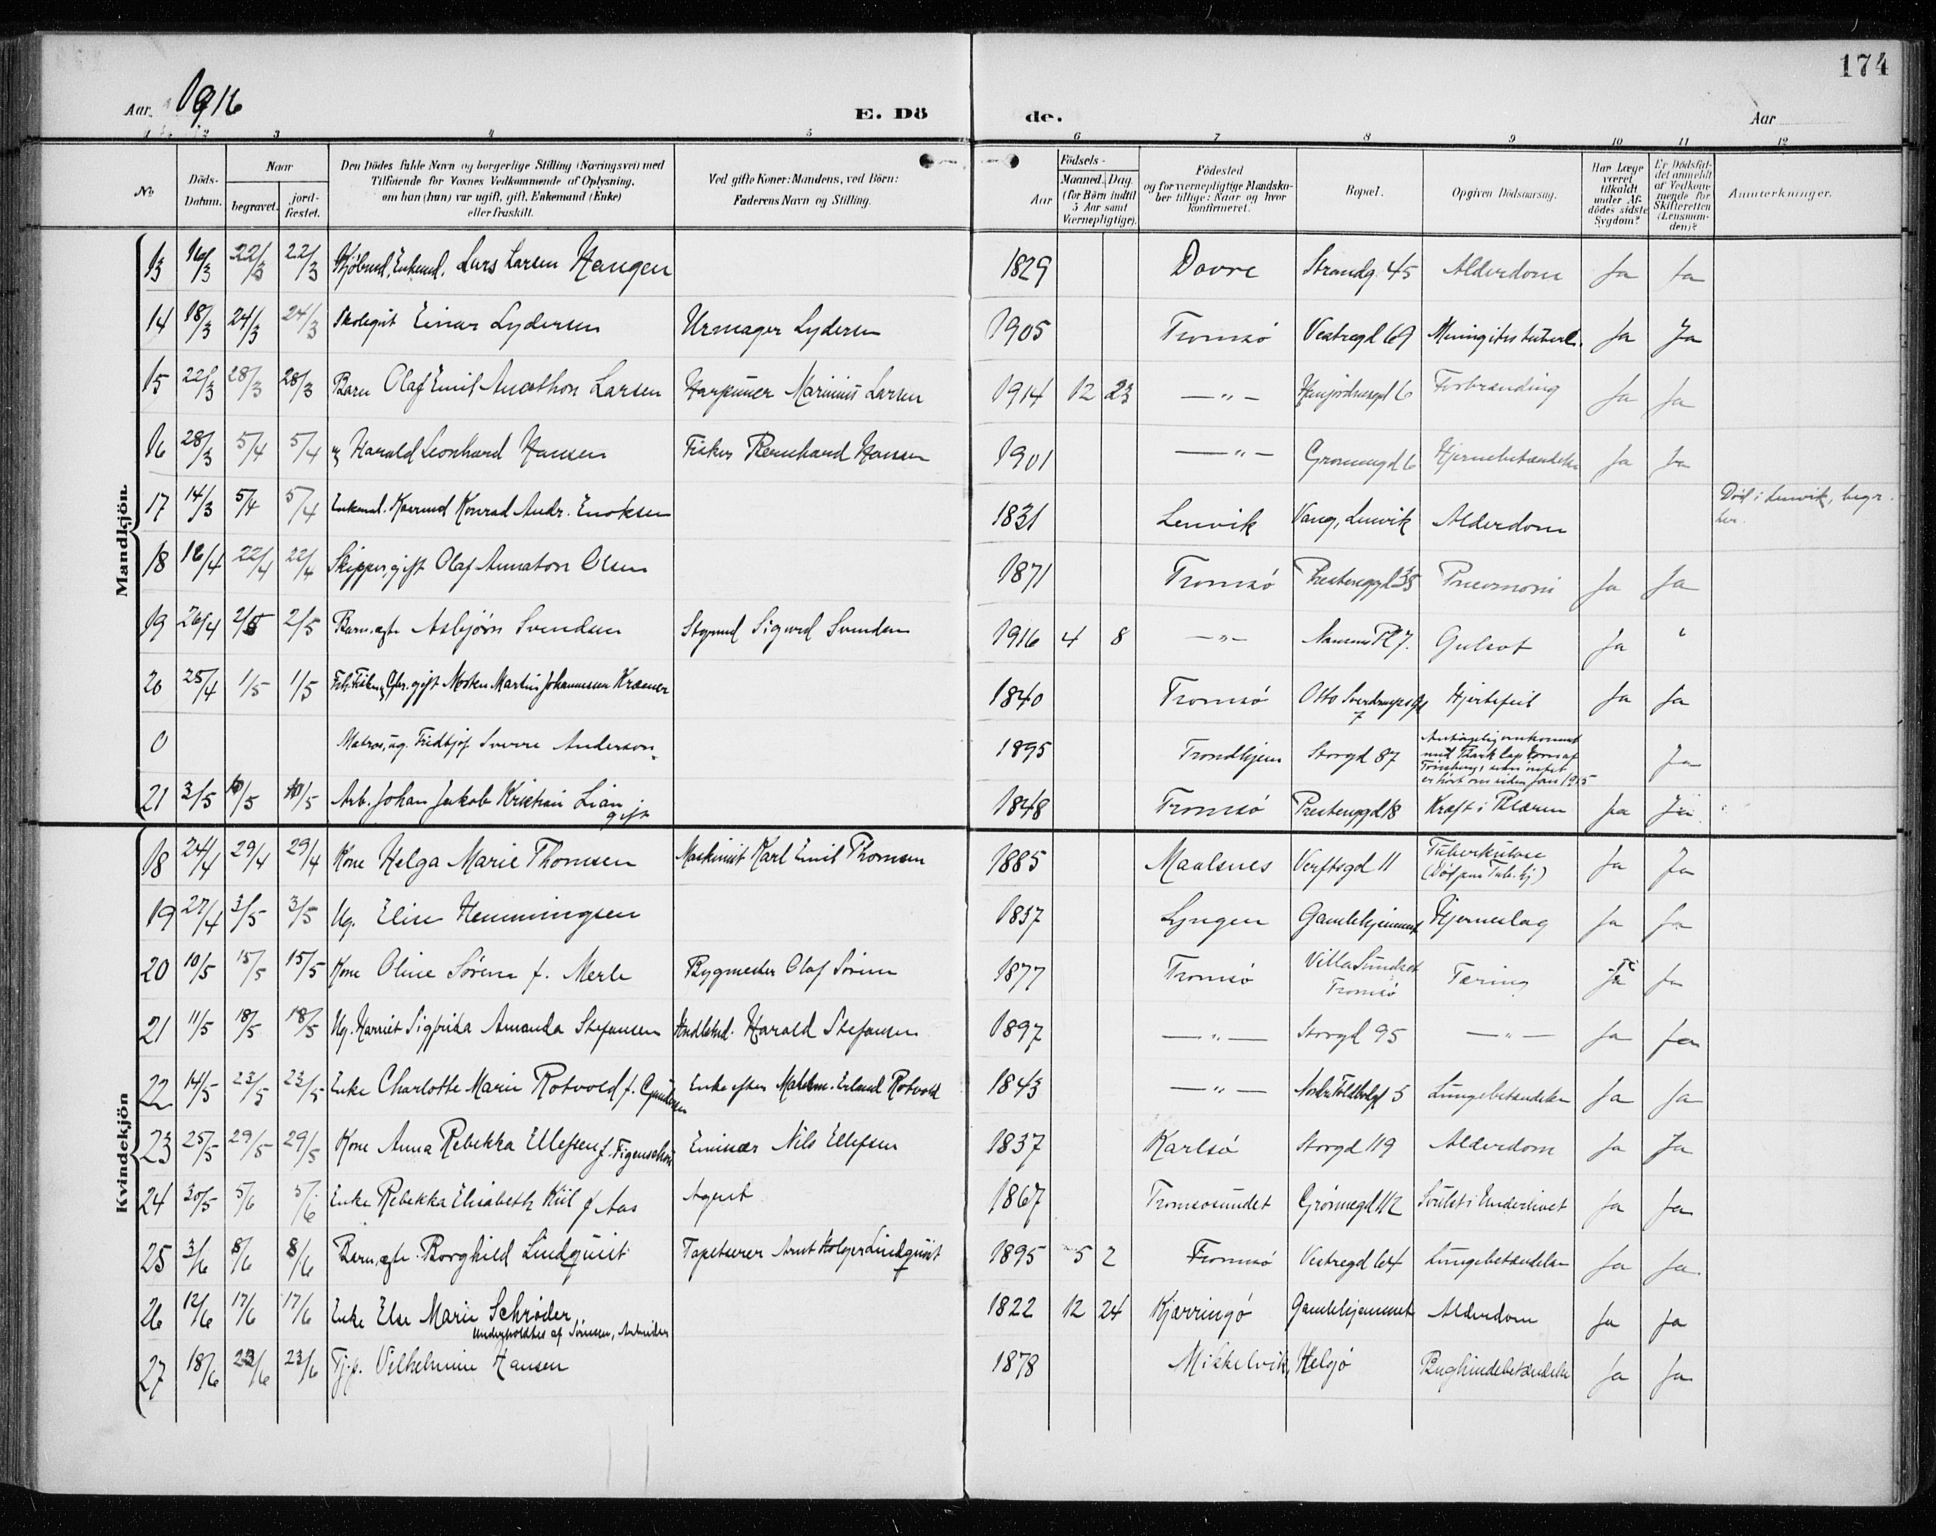 174
Aar 1916 E. Döde. Aar
1 2 3 4 5 6 7 8 9 10 11 12
No
Döds-Datum.
Naar
begravet.
jord-fæstet.
Den Dödes fulde Navn og borgerlige Stilling (Næringsvei) med
Tilföiende for Voxnes Vedkommende af Oplysning,
om han (hun) var ugift, gift, Enkemand (Enke)
eller fraskilt.
Ved gifte Koner: Mandens, ved Börn:
Faderens Navn og Stilling.
Födsels-
Aar
Maaned. Dag.
(for Börn indtil
5 Aar samt
Værnepligtige).
Födested
og for værnepligtige Mandska-
ber tillige: Naar og hvor
konfirmeret.
Bopæl.
Opgiven Dödsaarsag.
Har Læge
været
tilkaldt
under Af-
dödes sidste
Sygdom?
Er Dödsfal-
det anmeldt
af Vedkom-
mende for
Skifteretten
(Lensman-
den)?
Anmerkninger.
Mandkjön.
13 16/3 22/3 22/3 Kjøbmd, Enkemd. Lars Larsen Haugen 1829 Dovre Strandg. 45 Alderdom Ja Ja
14 18/3 24/3 24/3 Skolegut Einar Lydersen Urmager Lydersen 1905 Tromsö Vestregd 69 Meningitis tuberc. Ja Ja
15 22/3 28/3 28/3 Barn Olaf Emil Larsen Harpuner Marinius Larsen 1914 12 23 —"— 6 Forbrænding Ja Ja
16 28/3 5/4 5/4 Harald Leonhard Hansen Fisker Bernhard Hansen 1901 —"— Grønnegd 6 Hjernebetændelse Ja Ja
17 14/3 5/4 5/4 Enkemd. Konrad Andr. Enoksen 1831 Lenvik Vang, Lenvik Alderdom Död i Lenvik, begr. her.
18 16/4 22/4 22/4 Skipper, gift Olaf Annaton Olsen 1871 Tromsö 38 Pneumoni Ja Ja
19 26/4 2/5 2/5 Barn, ægte Asbjørn Svendsen Styrmd Sigurd Svendsen 1916 4 8 —"— Nansens Pl 7. Gulsot Ja "
20 25/4 1/5 1/5 gift Morten Martin Johannessen Kræmer 1840 Tromsö Otto Sverdrupsgd 7 Hjertefeil Ja Ja
0 Matros, ug. Fridtjof Sverre Anderson. 1895 Trondhjem Storgd 87 Antagelig omkommet med er hørt om siden Jan 1915 Ja
21 3/5 10/5 10/5 Arb. Johan Jakob Kristian Lian gift 1848 Tromsö 18 Kræft i Blæren Ja Ja
Kvindekjön
18 24/4 29/4 29/4 Kone Helga Marie Thomsen Maskinist Karl Emil Thomsen 1885 Maalsnes Verftsgd 11 Tuberkulose Ja Ja
19 27/4 3/5 3/5 Ug. Elise Hemmingsen 1837 Lyngen Gamlehjemmet Hjerneslag Ja Ja
20 10/5 15/5 15/5 Kone Oline Sørem f. Merle Bygmester Olaf Sørem 1877 Tromsö Villa Tromsö Tæring Ja Ja
21 11/5 18/5 18/5 Ug. Harriet Sigfrida Amanda Stefansen Harald Stefansen 1897 —"— Storgd 95 —"— Ja Ja
22 14/5 23/5 23/5 Enke Charlotte Marie Rotvold f. Gundersen Enke efter Erland Rotvold 1843 —"— 5 Lungebetændelse Ja Ja
23 25/5 29/5 29/5 Kone Anna Rebekka Ellefsen f. Figenschou Nils Ellefsen 1837 Karlsö Storgd 119 Alderdom Ja Ja
24 30/5 5/6 5/6 Enke Rebekka Elisabeth Kiil f Aas Agent 1867 Tromsösundet Grønnegd 112 Svulst i Underlivet Ja Ja
25 3/6 8/6 8/6 Barn, ægte Borghild Lindquist Tapetserer Arnt Holger Lindquist 1895 5 2 Tromsö Vestregd 64 Lungebetændelse Ja Ja
26 12/6 17/6 17/6 Enke Else Marie Schrøder 1822 12 24 Kjærringö Gamlehjemmet Alderdom Ja Ja
underholdtes af Arbeider
27 18/6 23/6 23/6 Tj.p. Vilhelmine Hansen 1878 Mikkelvik, Helsö Bughindebetændelse Ja Ja